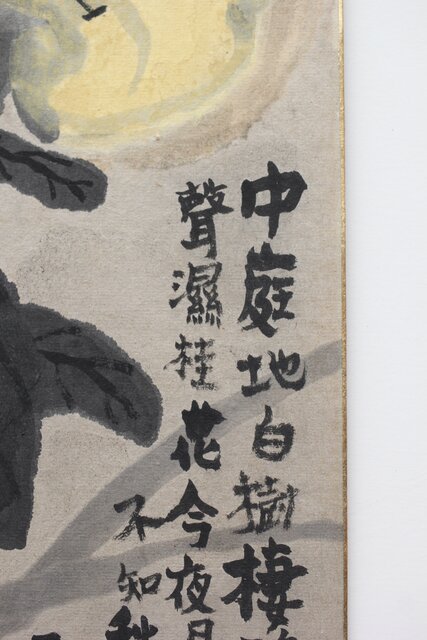 中庭地白樹棲
聲濕桂花今夜月
不知秋